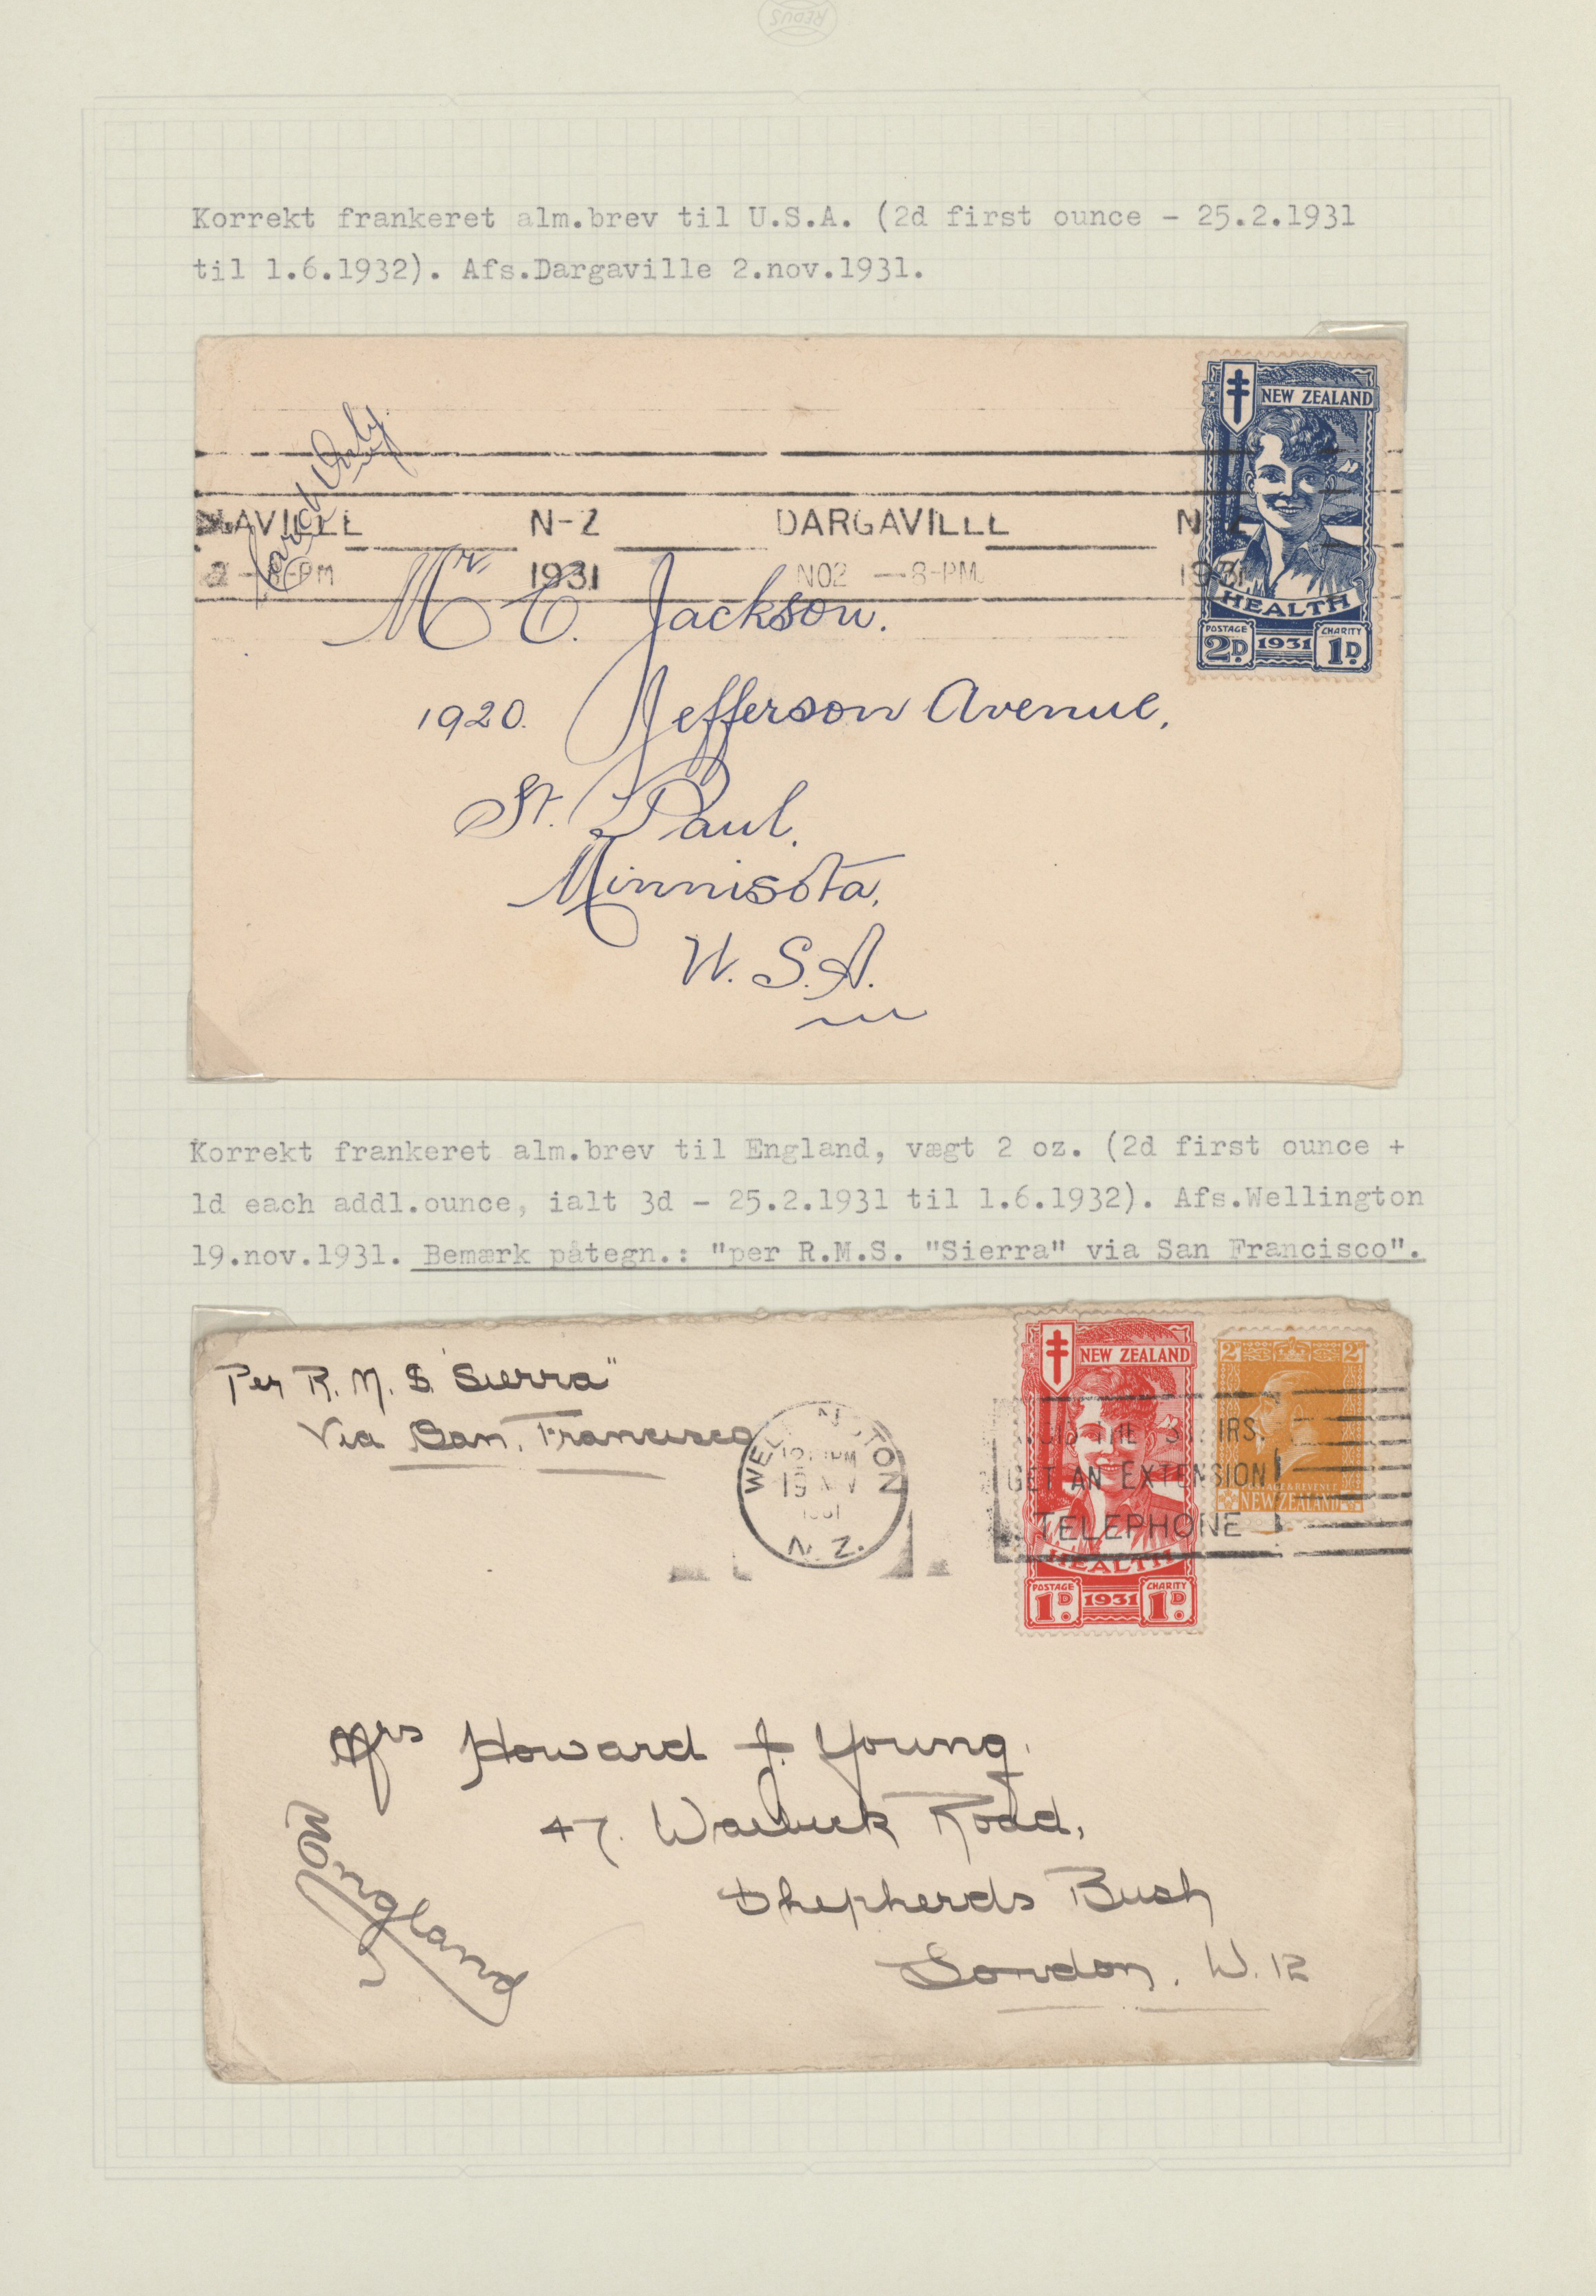 REDUS
Korrekt frankeret alm.brev til U.S.A. (2d first ounce - 25.2.1931
til 1.6.1932). Afs.Dargaville 2.nov.1931.
NEW ZEALAND
HEALTH
POSTAGE 2D. 1931 CHARITY 1D.
GAVILLE N-Z DARGAVILLE N-Z
2 -8-PM 1931 NO2 -8-PM 1931
Card Only
Mr. C. Jackson.
1920. Jefferson Avenue,
St. Paul.
Minnisota,
U.S.A.
Korrekt frankeret alm.brev til England, vægt 2 oz. (2d first ounce +
1d each addl.ounce, ialt 3d - 25.2.1931 til 1.6.1932). Afs.Wellington
19.nov.1931. Bemærk påtegn.: "per R.M.S. "Sierra" via San Francisco".
Per R.M.S. "Sierra"
Via San Francisco
WELLINGTON
19 NOV
1931
N.Z.
NEW ZEALAND
HEALTH
POSTAGE 1D. 1931 CHARITY 1D.
2D 2D
POSTAGE & REVENUE
NEW ZEALAND
GET AN EXTENSION
TELEPHONE
Mrs Howard J. Young.
47. Warwick Road,
Shepherds Bush
London. W.12
England